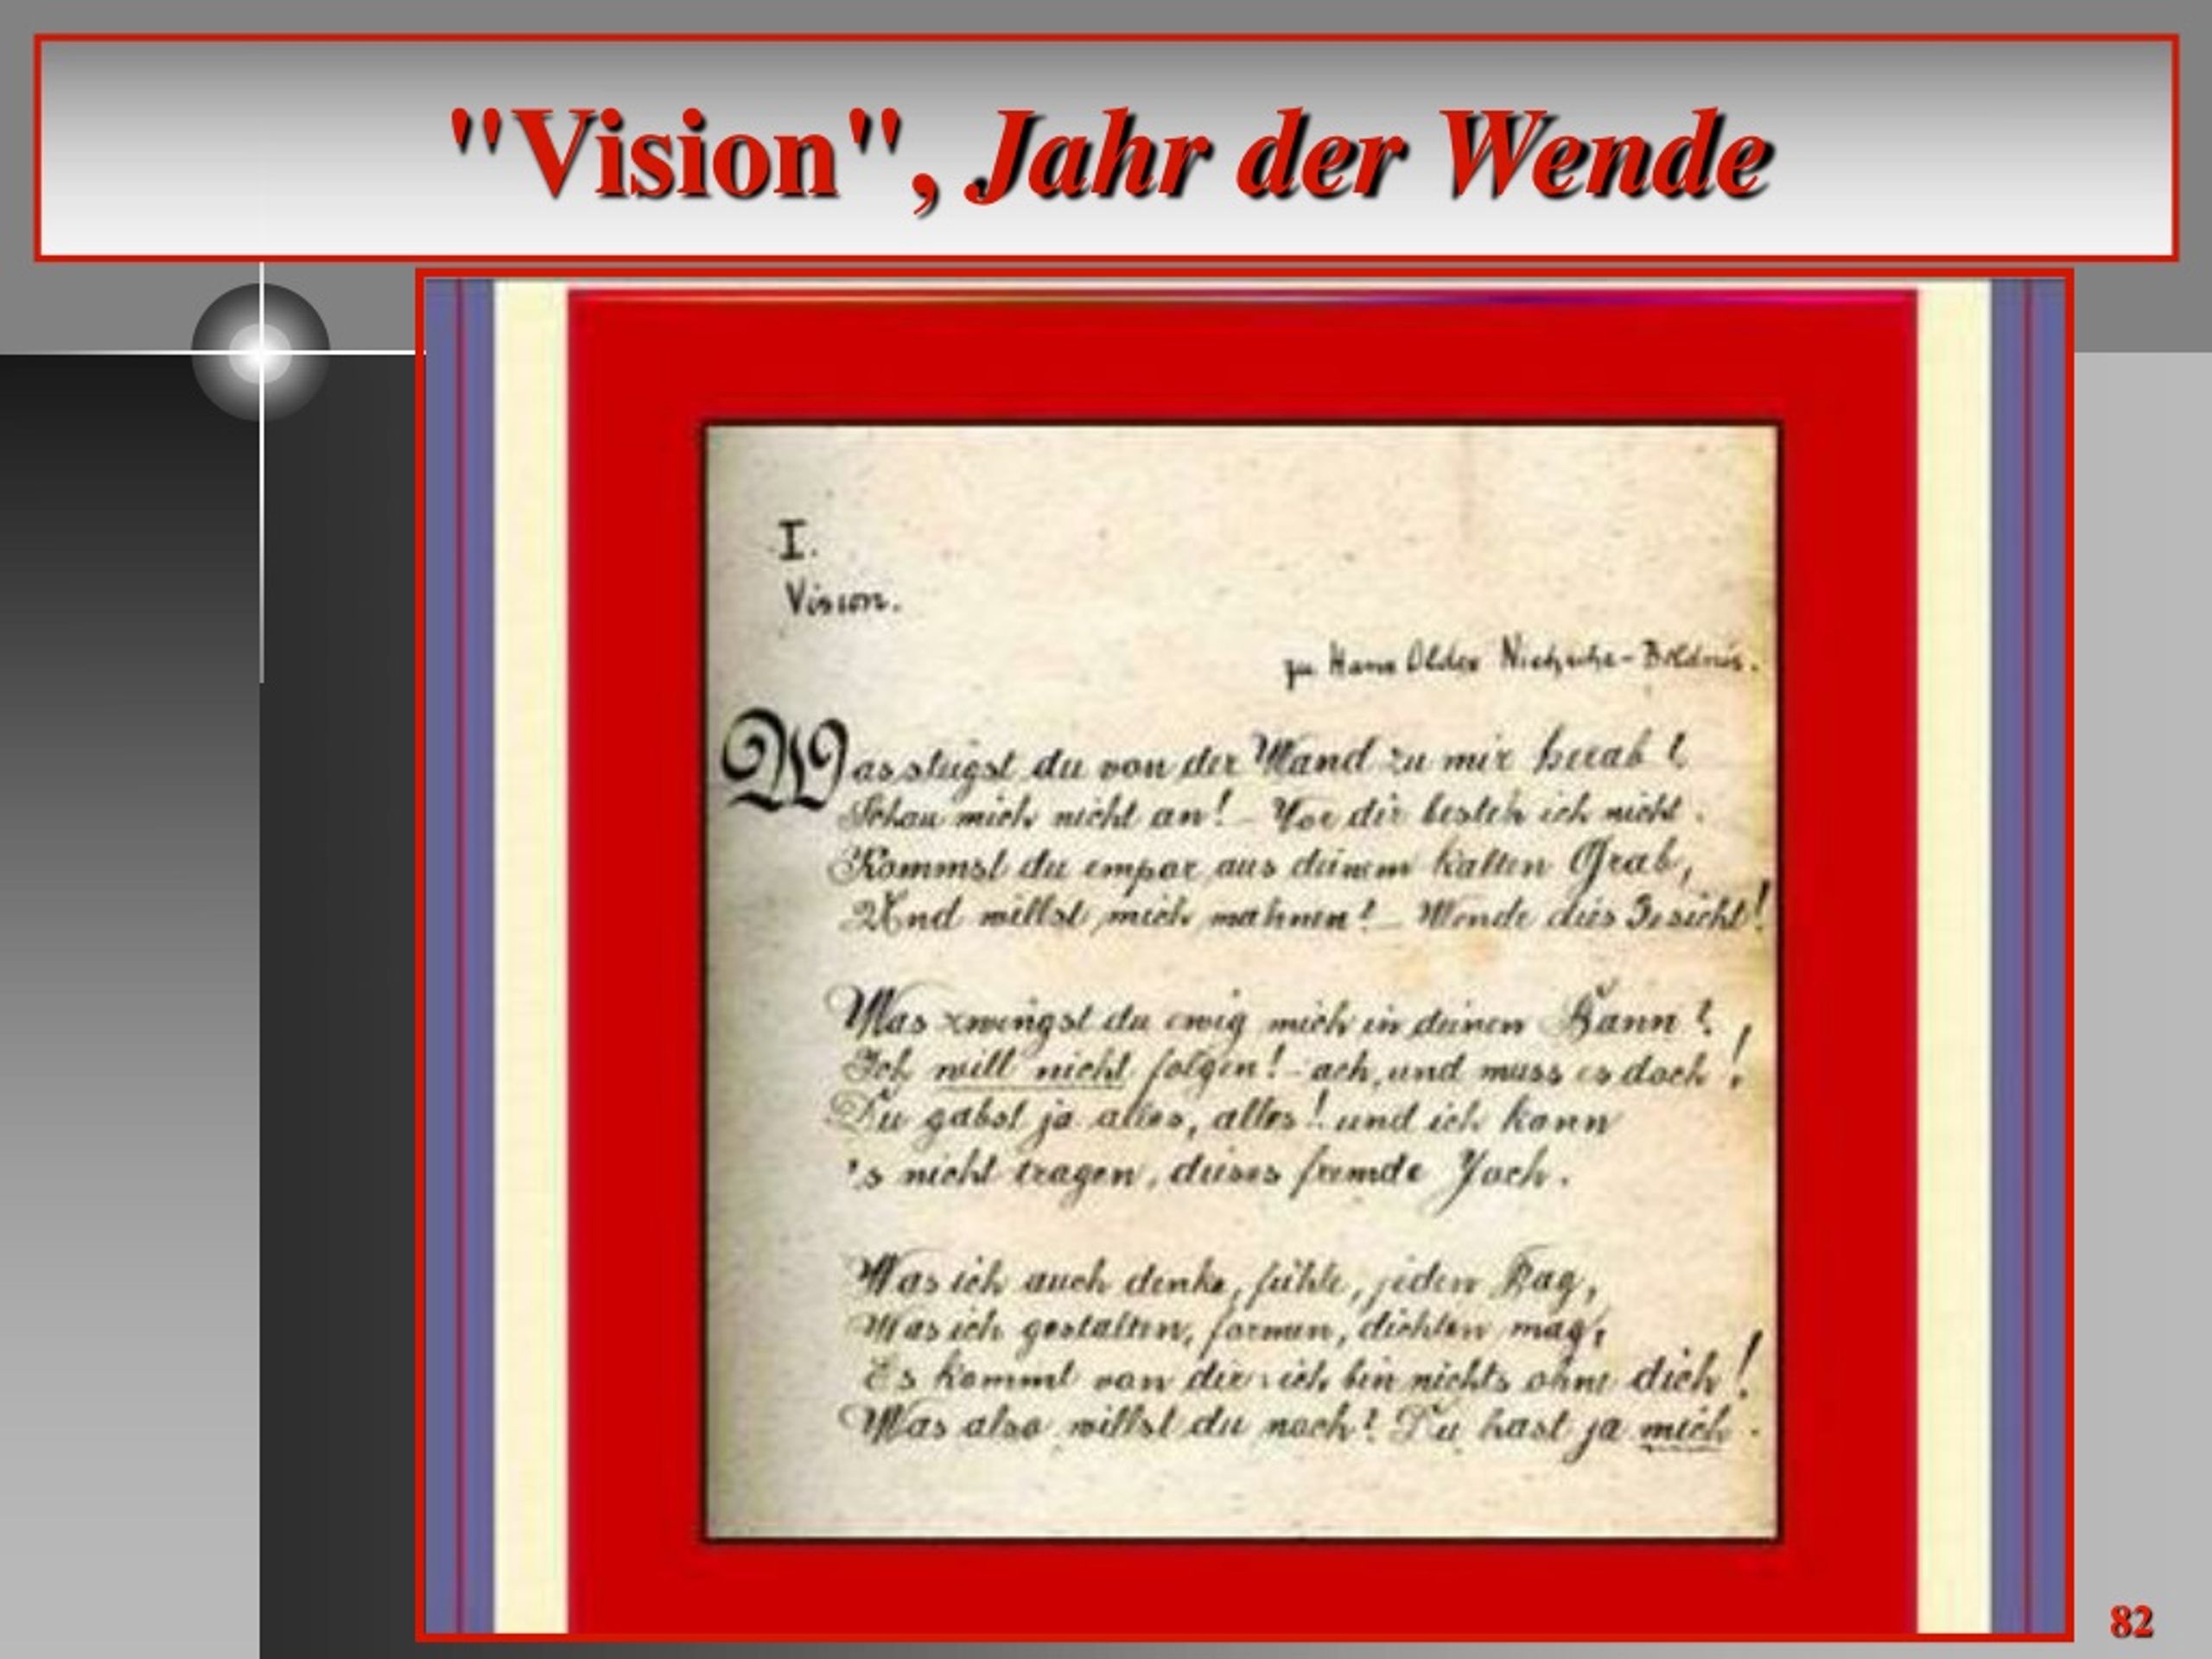 "Vision", Jahr der Wende
I.
Vision.
zu Hans Oldes Nietzsche-Bildnis.
Was steigst du von der Wand zu mir herab?
Schau mich nicht an! – Vor dir besteh ich nicht.
Kommst du empor aus deinem kalten Grab,
Und willst mich mahnen? – Wende dies Gesicht!
Was zwingst du ewig mich in deinen Bann?
Ich will nicht folgen! – ach, und muss es doch!
Du gabst ja alles, alles! und ich kann
's nicht tragen, dieses fremde Joch.
Was ich auch denke, fühle, jeden Tag,
Was ich gestalten, formen, dichten mag,
Es kommt von dir: ich bin nichts ohne dich!
Was also willst du noch? Du hast ja mich.
82